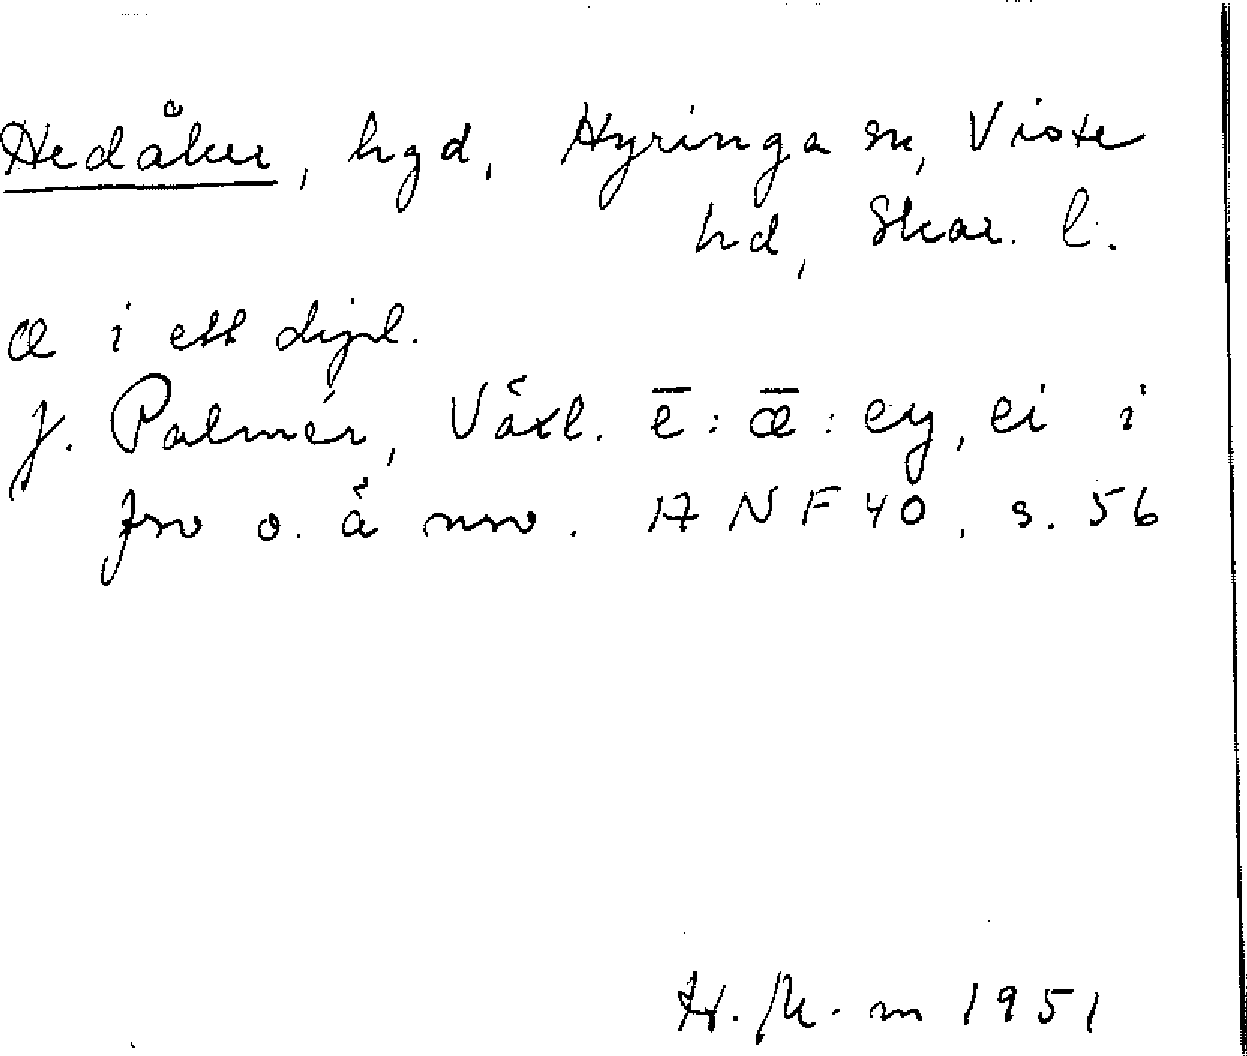 Hedåker, hgd, Hyringa sn, Viste
hd, Skar. l.
æ i ett dipl.
J. Palmér, Växl. ē : ǣ : ey, ei i
fsv o. ä nsv. ANF 40, s. 56
H. K-m 1951